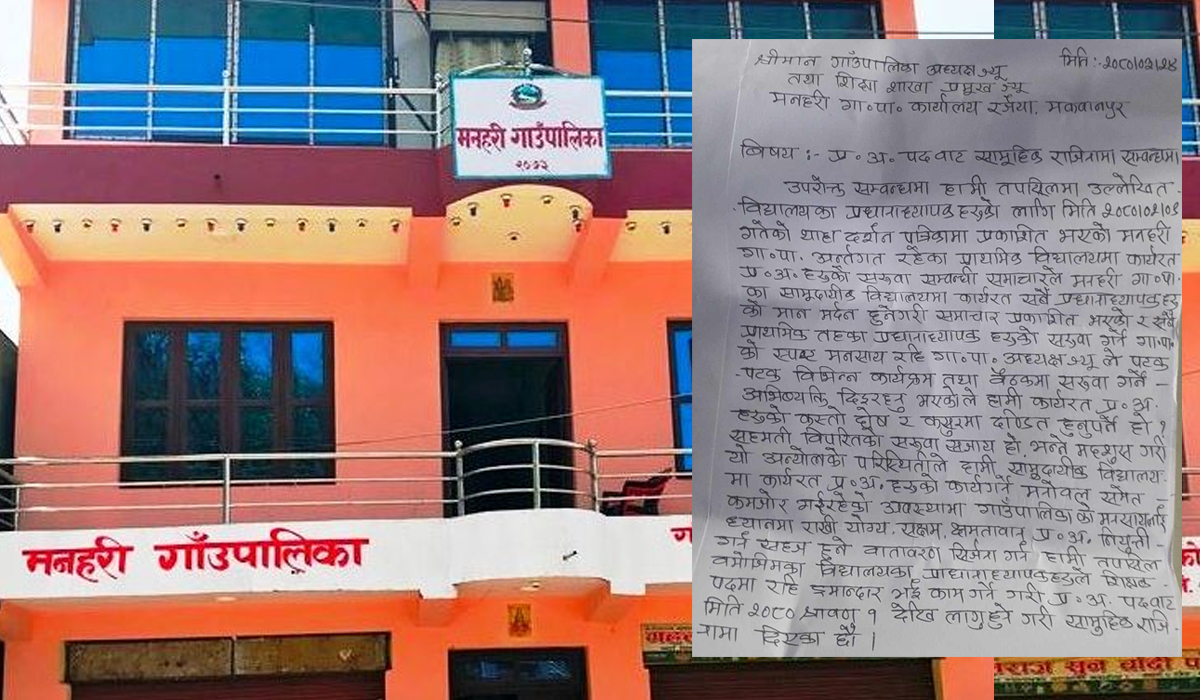 मनहरी गाउँपालिका
२०७३
मनहरी गाँउपालिका
श्रीमान गाँउपालिका अध्यक्ष ज्यू
मिति :- २०८०।०३।२४
तथा शिक्षा शाखा प्रमुख ज्यू
मनहरी गा॰पा॰ कार्यालय रजैया, मकवानपुर
बिषय :- प्र॰अ॰ पदबाट सामूहिक राजिनामा सम्बन्धमा
उपरोक्त सम्बन्धमा हामी तपसिलमा उल्लेखित
विद्यालयका प्रधानाध्यापकहरुको लागि मिति २०८०।०३।०३
गतेको थाहा दर्शन पत्रिकामा प्रकाशित भएको मनहरी
गा॰पा. अर्न्तगत रहेका प्राथमिक विद्यालयमा कार्यरत
प्र॰अ॰हरुको सरुवा सम्बन्धी समाचारले मनहरी गा॰पा॰
का सामूदायीक विद्यालयमा कार्यरत सबै प्रधानाध्यापकहरु
को मान मर्दन हुनेगरी समाचार प्रकाशित भएको र सबै
प्राथमिक तहका प्रधानाध्यापक हरुको सरुवा गर्ने गा॰पा॰
को स्पष्ट मनसाय रहि गा॰पा॰ अध्यक्ष ज्यू ले पटक
पटक विभिन्न कार्यक्रम तथा बैठकमा सरुवा गर्ने
अभिव्यक्ति दिइरहनु भएकोले हामी कार्यरत प्र॰अ॰
हरुको कस्तो दोष र कसुरमा दण्डित हुनुपर्ने हो ?
सहमती विपरितको सरुवा सजाय हो, भन्ने महशुस गरी
यो अन्योलको परिस्थितीले हामी सामूदायीक विद्यालय
मा कार्यरत प्र॰अ॰ हरुको कार्यगर्ने मनोवल समेत
कमजोर भईरहेको अवस्थामा गाउँपालिका को मनसायलाई
ध्यानमा राखी योग्य, सक्षम, क्षमतावान् प्र॰अ॰ नियुक्ती
गर्न सहज हुने वातावरण सिर्जना गर्न हामी तपसिल
बमोजिमका विद्यालयका प्राधानाध्यापकहरुले शिक्षक
पदमा रहि इमान्दार भई काम गर्ने गरी प्र॰अ॰ पदबाट
मिति २०८० श्रावण १ देखि लागुहुने गरी सामुहिक राजि
नामा दिएका छौं ।